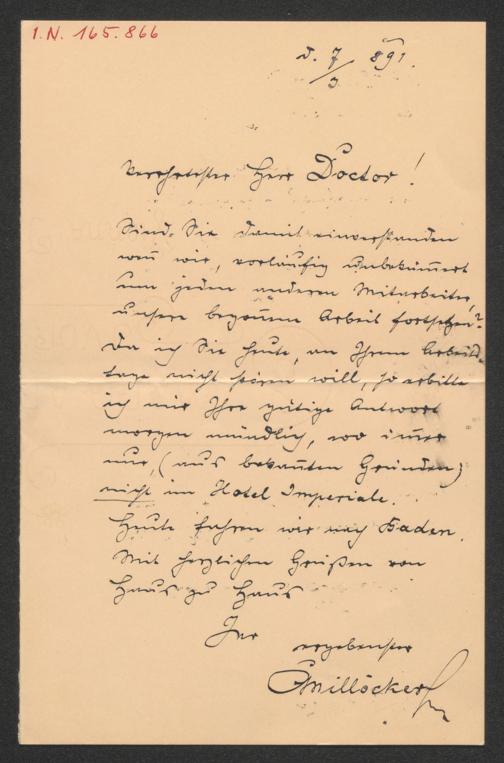 I.N. 165.866
d. 7/3 891.
Verehrtester Herr Doctor!
Sind Sie damit einverstanden
wen̄ wir, vorläufig unbeküm̄ert
um jeden anderen Mitarbeiter,
unsere begon̄ene Arbeit fortsetzen?
Da ich Sie heute, an Ihrem Arbeits-
tage nicht stören will, so erbitte
ich mir Ihre gütige Antwort
morgen mündlich, wo im̄er
nur, (aus bekan̄ten Gründen)
nicht im Hotel Imperiale.
Heute fahren wir nach Baden.
Mit herzlichen Grüßen von
Haus zu Haus
Ihr
ergebenster
CMillöcker